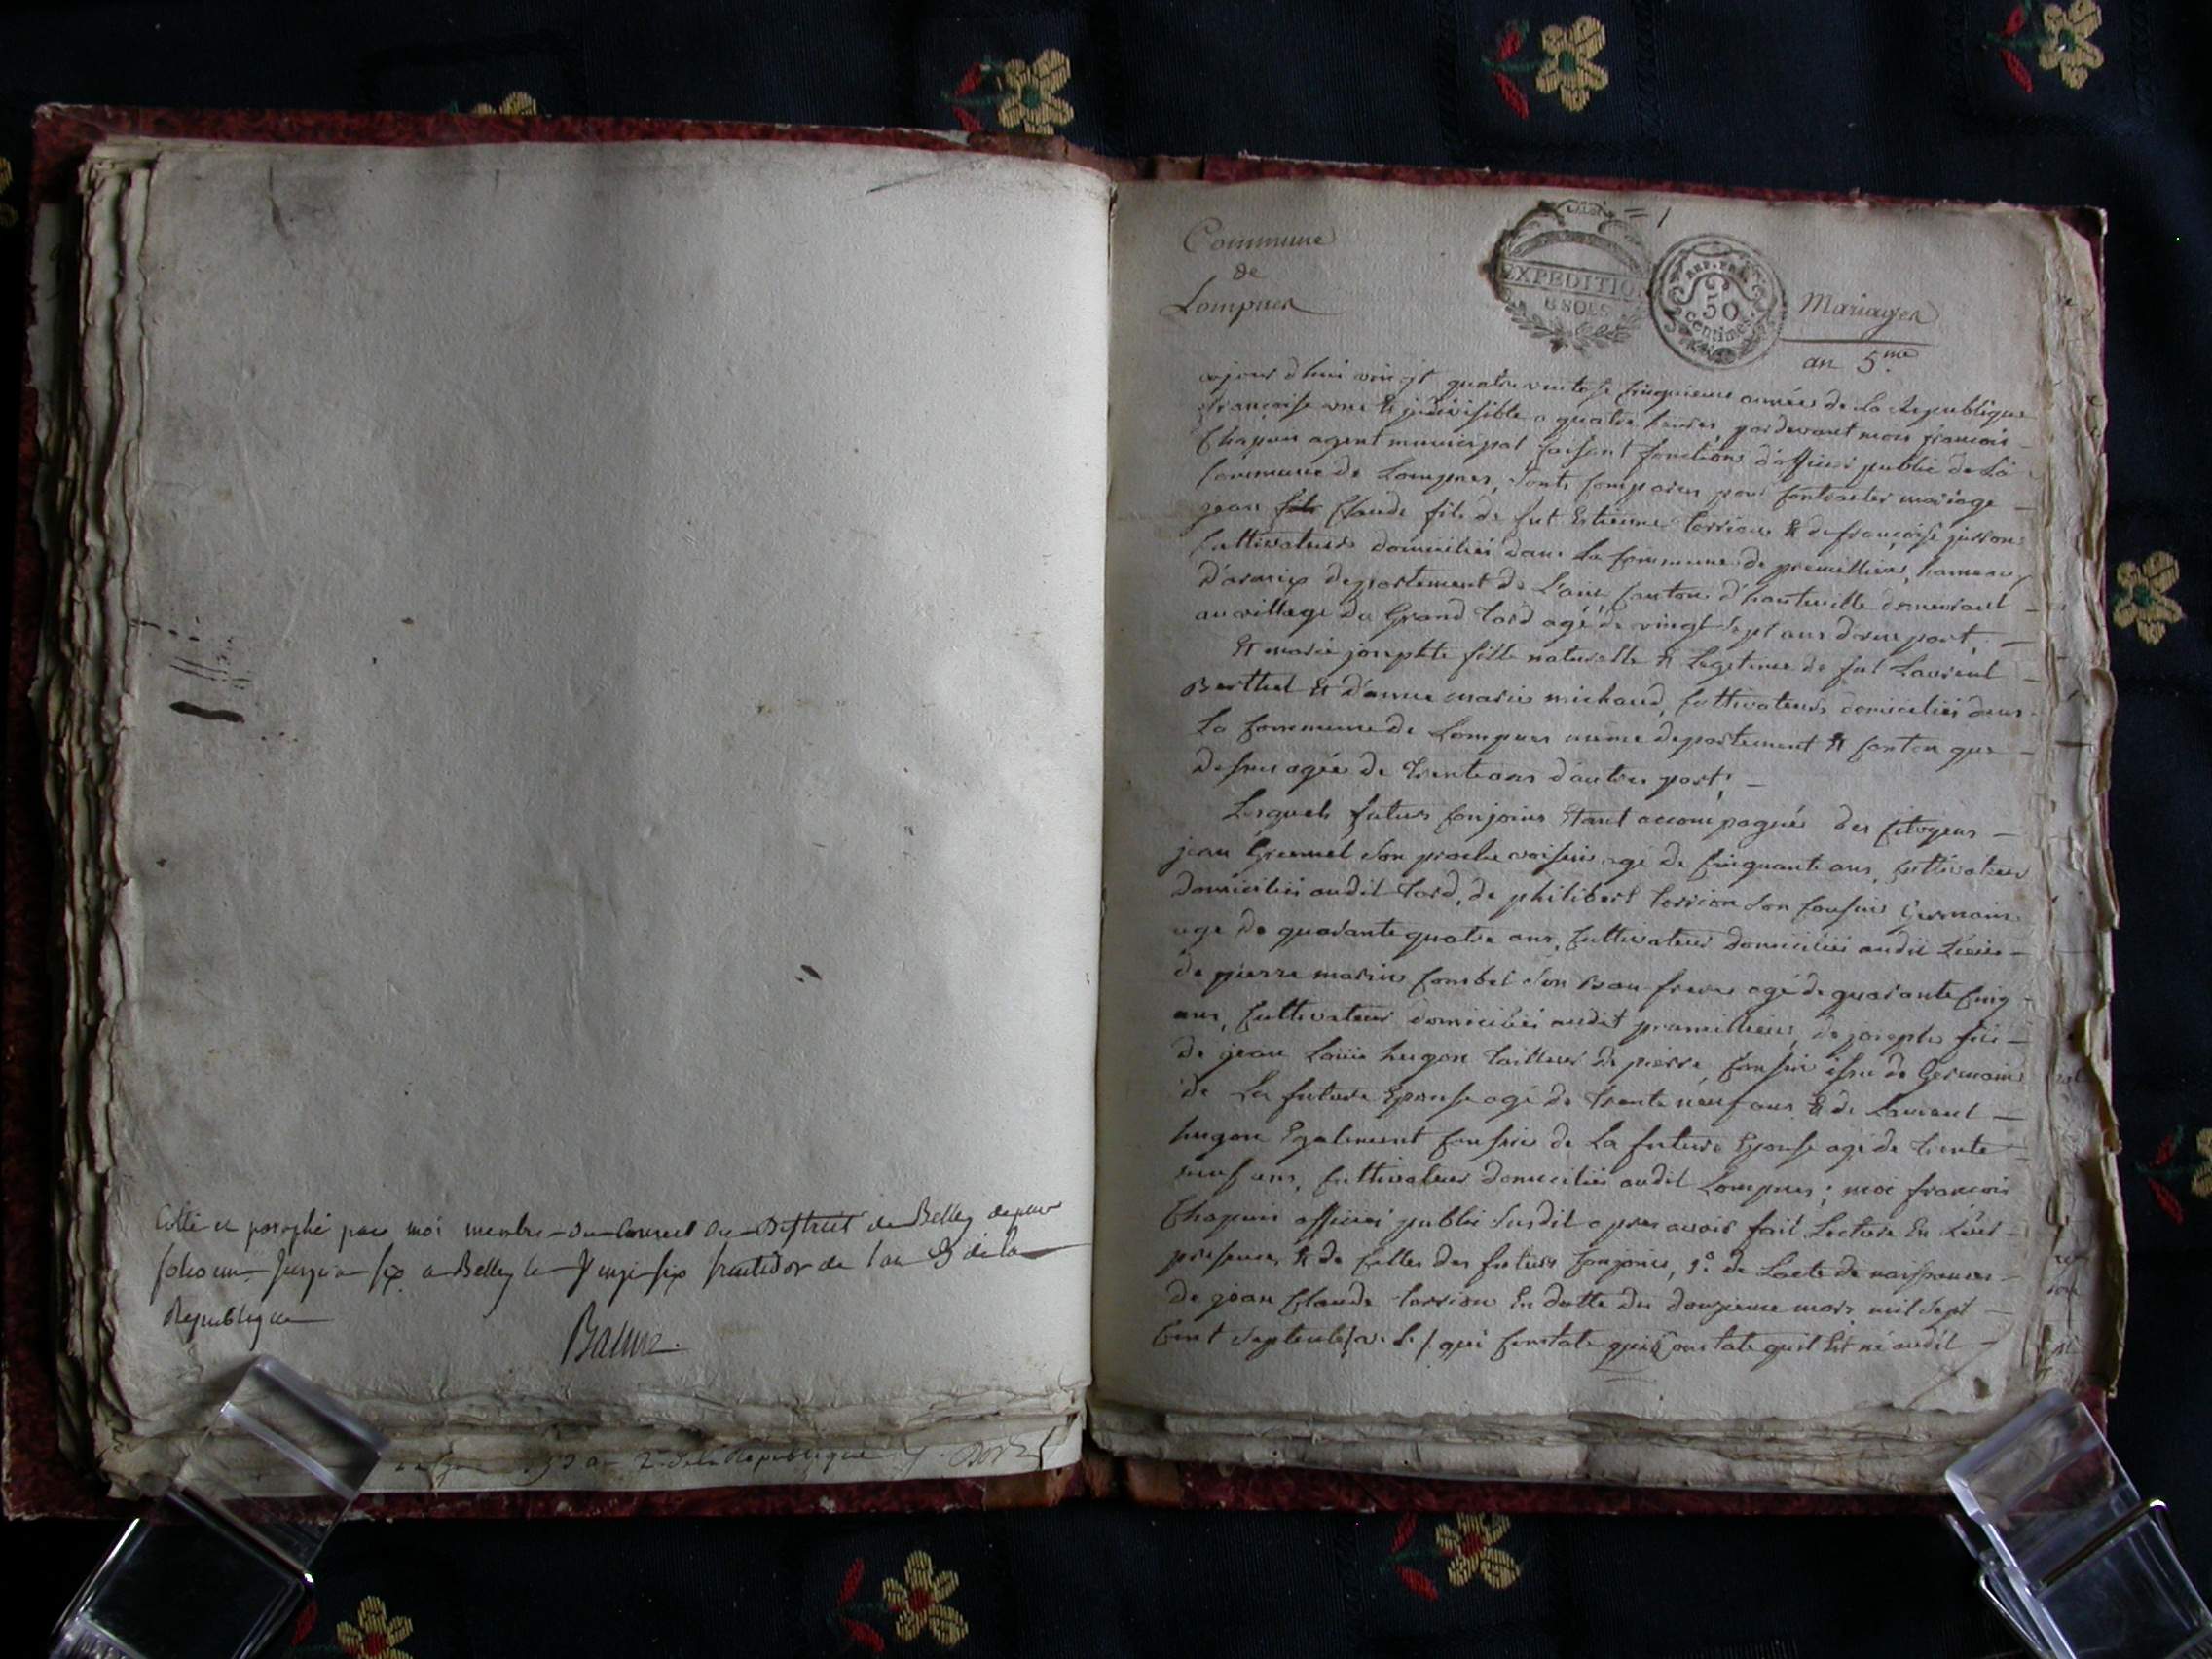 Cotté et paraphé par moi membre du Conseil du District de Belley depuis
folio un jusqu'a six a Belley le Vingt six fructidor de l'an 3 de la
République
Balme
2 de la République
Commune
de
Lompnes
EXPEDITION
8 SOLS
REP. FRA
50
centimes
Mariages
an 5.me
aujour d'hui vingt quatre ventose cinquieme année de la Republique
françoise une et indivisible a quatre heures, pardevant moi francois
Chapuis agent municipal faisant fonctions d'officier public de La
Commune de Lompnes, sont comparus pour contracter mariage
jean Claude fils de fut Estienne Carrion et de françoise
Cultivateurs domiciliés dans la Commune de premillieu, hameau
d'armix departement de L'ain canton d'hauteville demeurant
au village du Grand Tard agé de vingt sept ans d'une part,
Et marie josephte fille naturelle et Legitime de fut Laurent
Berthet et d'anne marie michaud, Cultivateurs domiciliés dans
La Commune de Lompnes même departement et Canton que
dessus agée de trente ans d'autre part;
Lesquels futurs Conjoins Etant accompagnés des Citoyens
jean son proche voisin agé de Cinquante ans, Cultivateur
domicilié audit Tard, de philibert Carrion son Cousin Germain
agé de quarante quatre ans, Cultivateur domicilié audit Lieu
de pierre marin Combet son Beau frere agé de quarante Cinq
ans, Cultivateur domicilié audit premillieu, de joseph fils
de jean Louis hugon tailleur de pierre, Cousin issu de Germain
de La future Epouse agé de trente neuf ans et de Laurent
hugon Egalement Cousin de La future Epouse agé de trente
neuf ans, Cultivateur domicilié audit Lompnes; moi francois
Chapuis officier public susdit apres avoir fait Lecture En Leur
presence et de Celles des futurs Conjoins, 1.° de Lacte de naissance
de jean Claude Carrion En datte du douzieme mars mil sept
Cent septente (v. s.) qui Constate qui Constate quil Est né audit